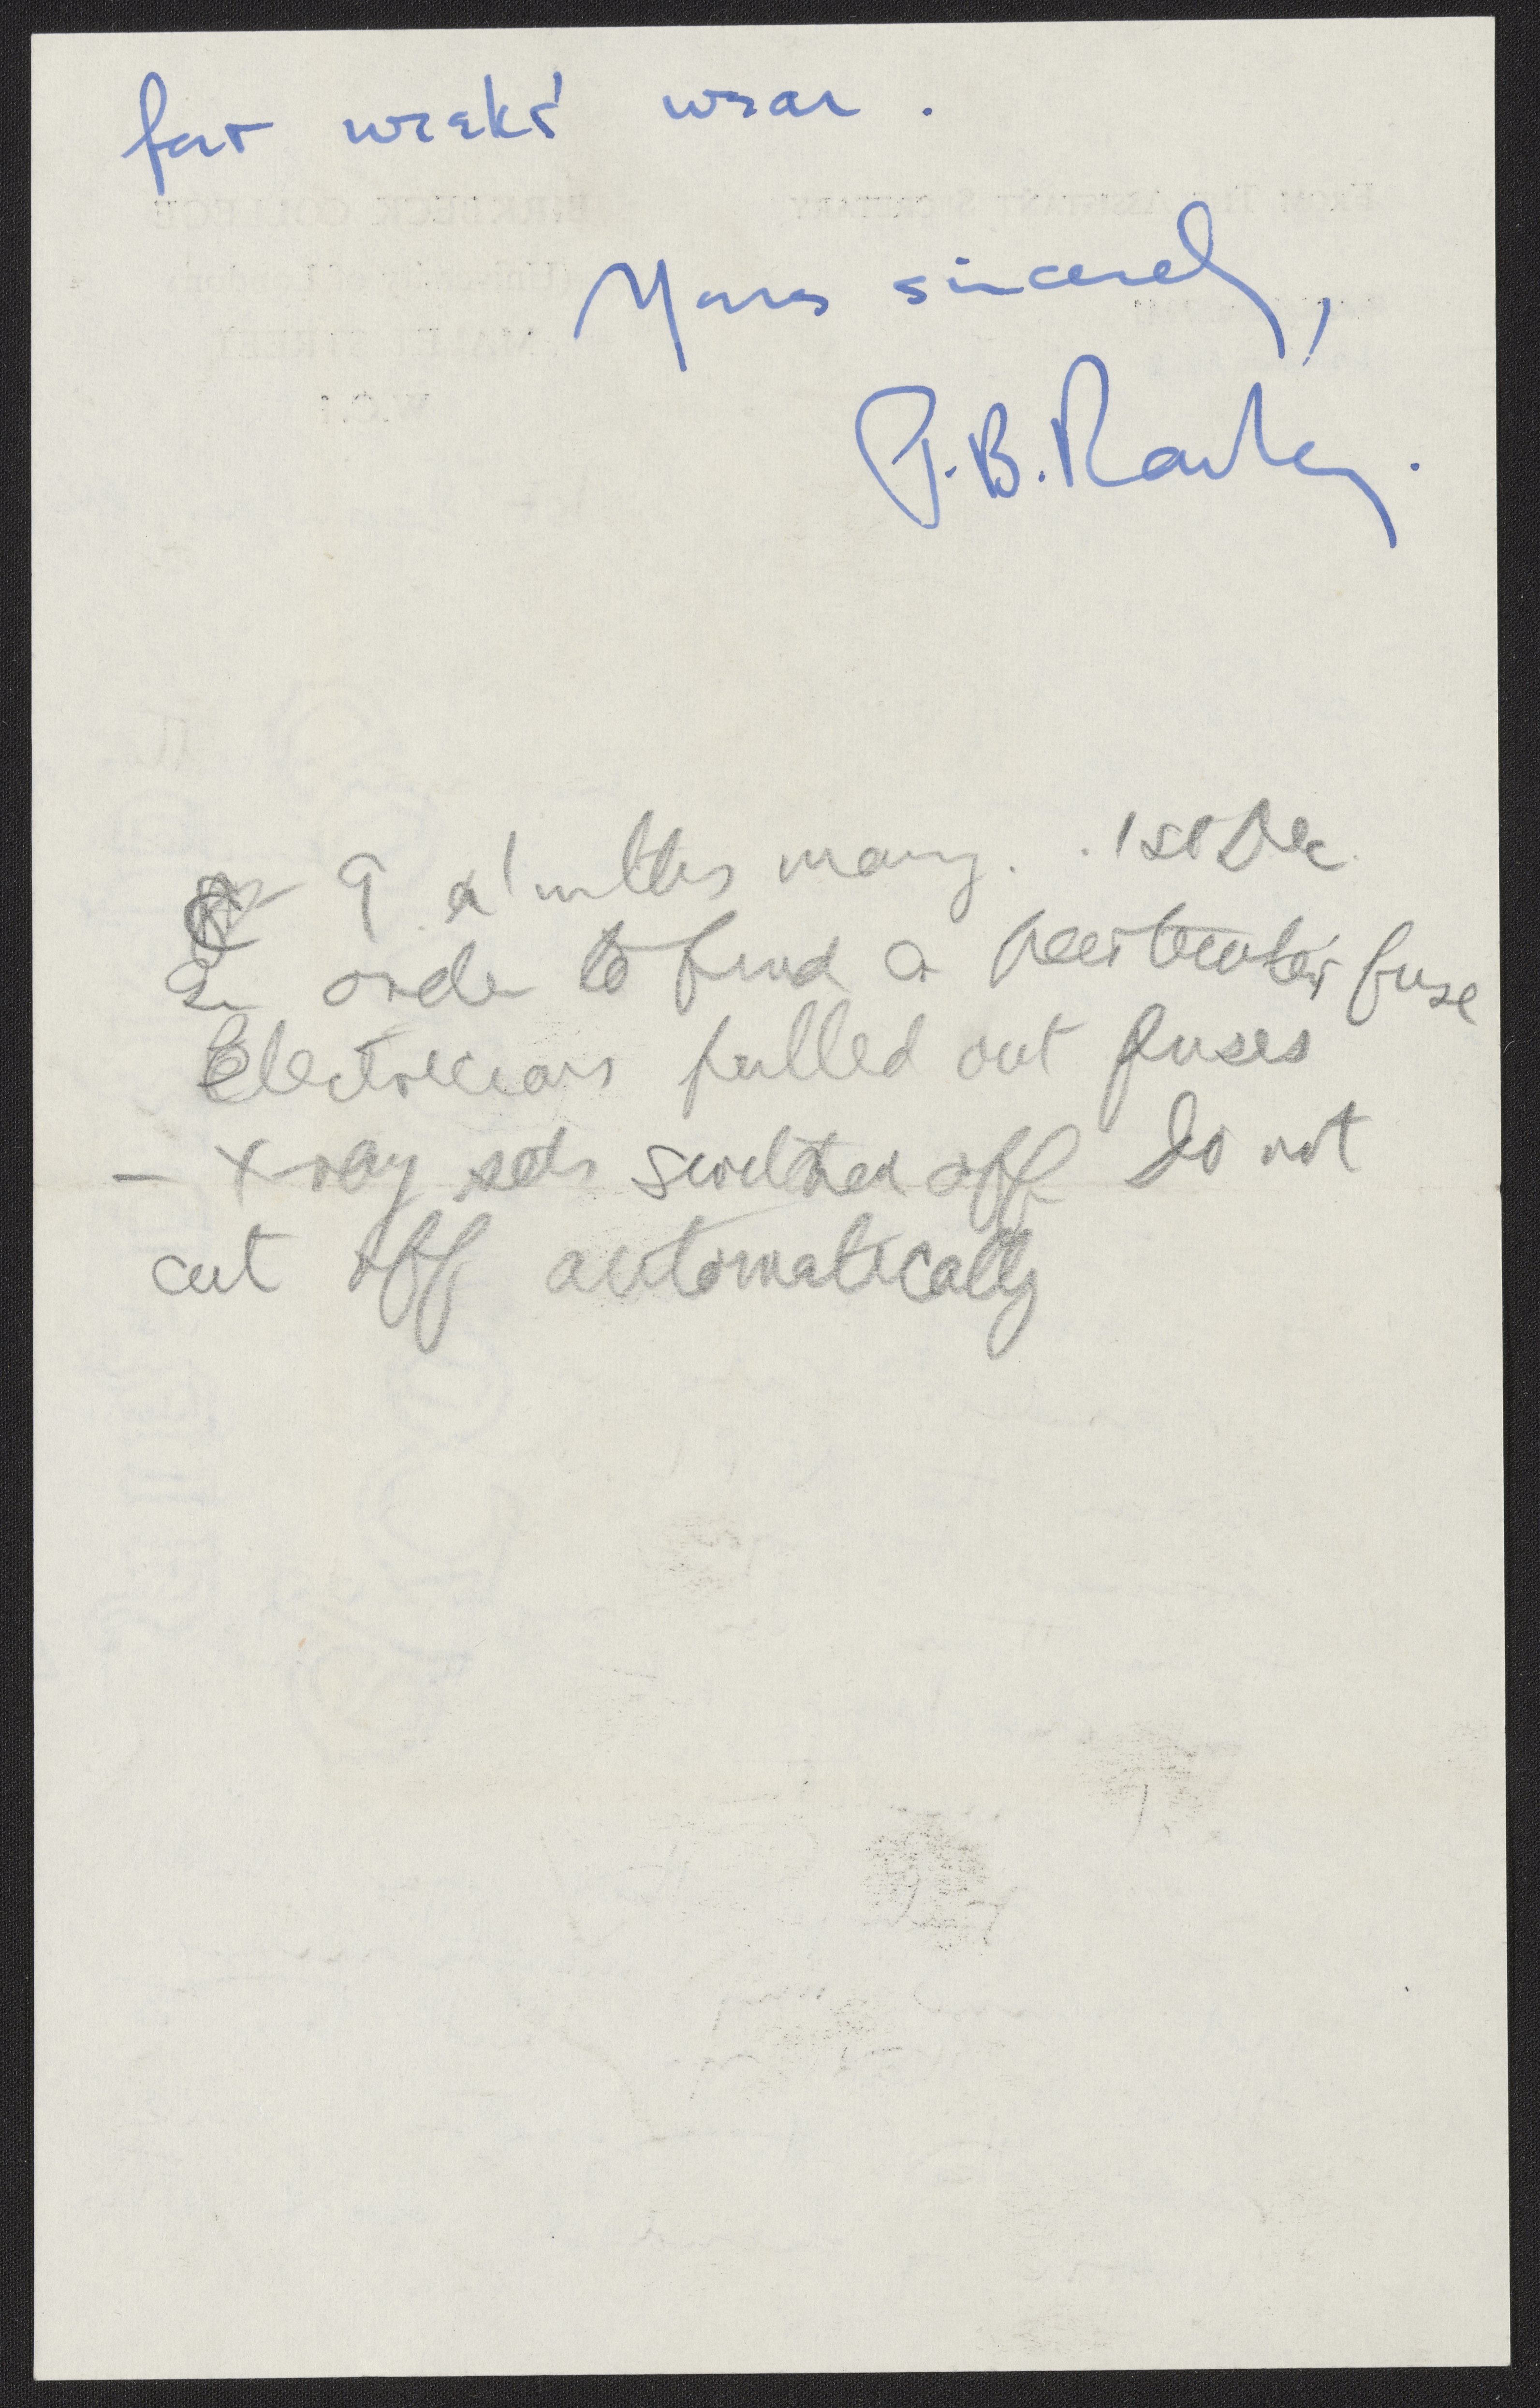 for weeks' wear.
Yours sincerely,
P.B. Rawley.
9 many. . 1st Dec
In order to find a particular fuse
Electricians pulled out fuses
— X-ray sets switched off do not
cut off automatically